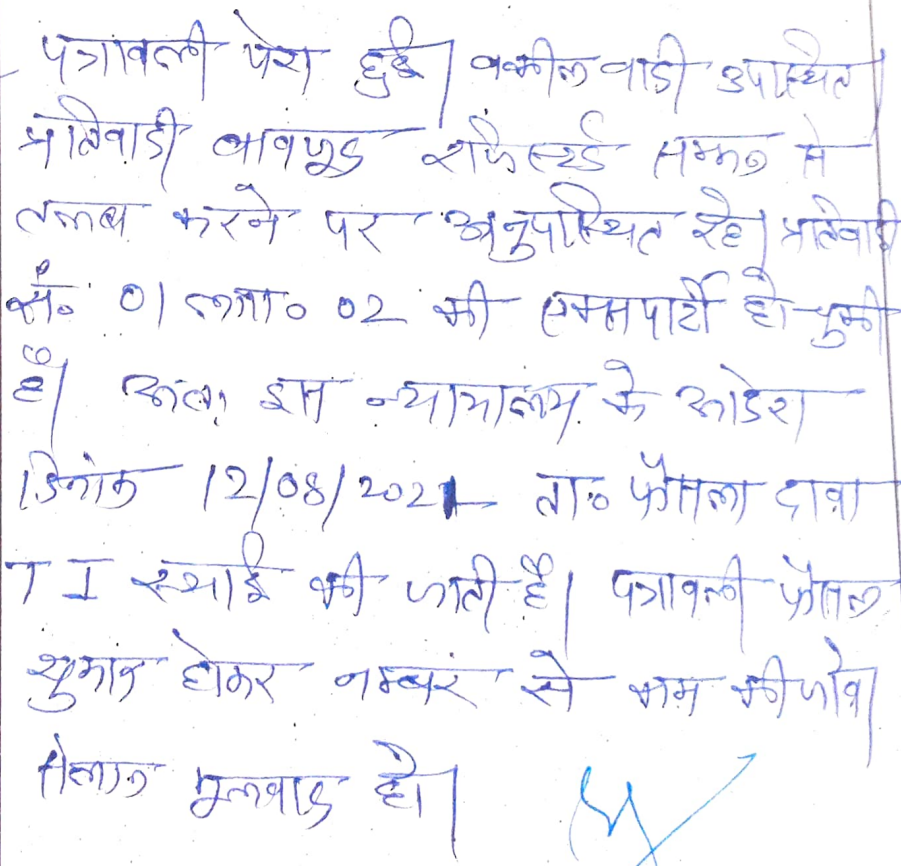 पत्रावली पेश हुई। वकील वादी उपस्थित।
प्रतिवादी बावजूद रजिस्टर्ड सम्मन से
तलब करने पर अनुपस्थित रहे। प्रतिवादी
सं० 01 लगा० 02 की एक्सपार्टी हो चुकी
है। अतः इस न्यायालय के आदेश
दिनांक 12/08/2021 ता० फैसला दावा
T I स्थाई की जाती है। पत्रावली फैसल
शुमार होकर नम्बर से कम की जावे।
संलग्न मूलवाद हो।